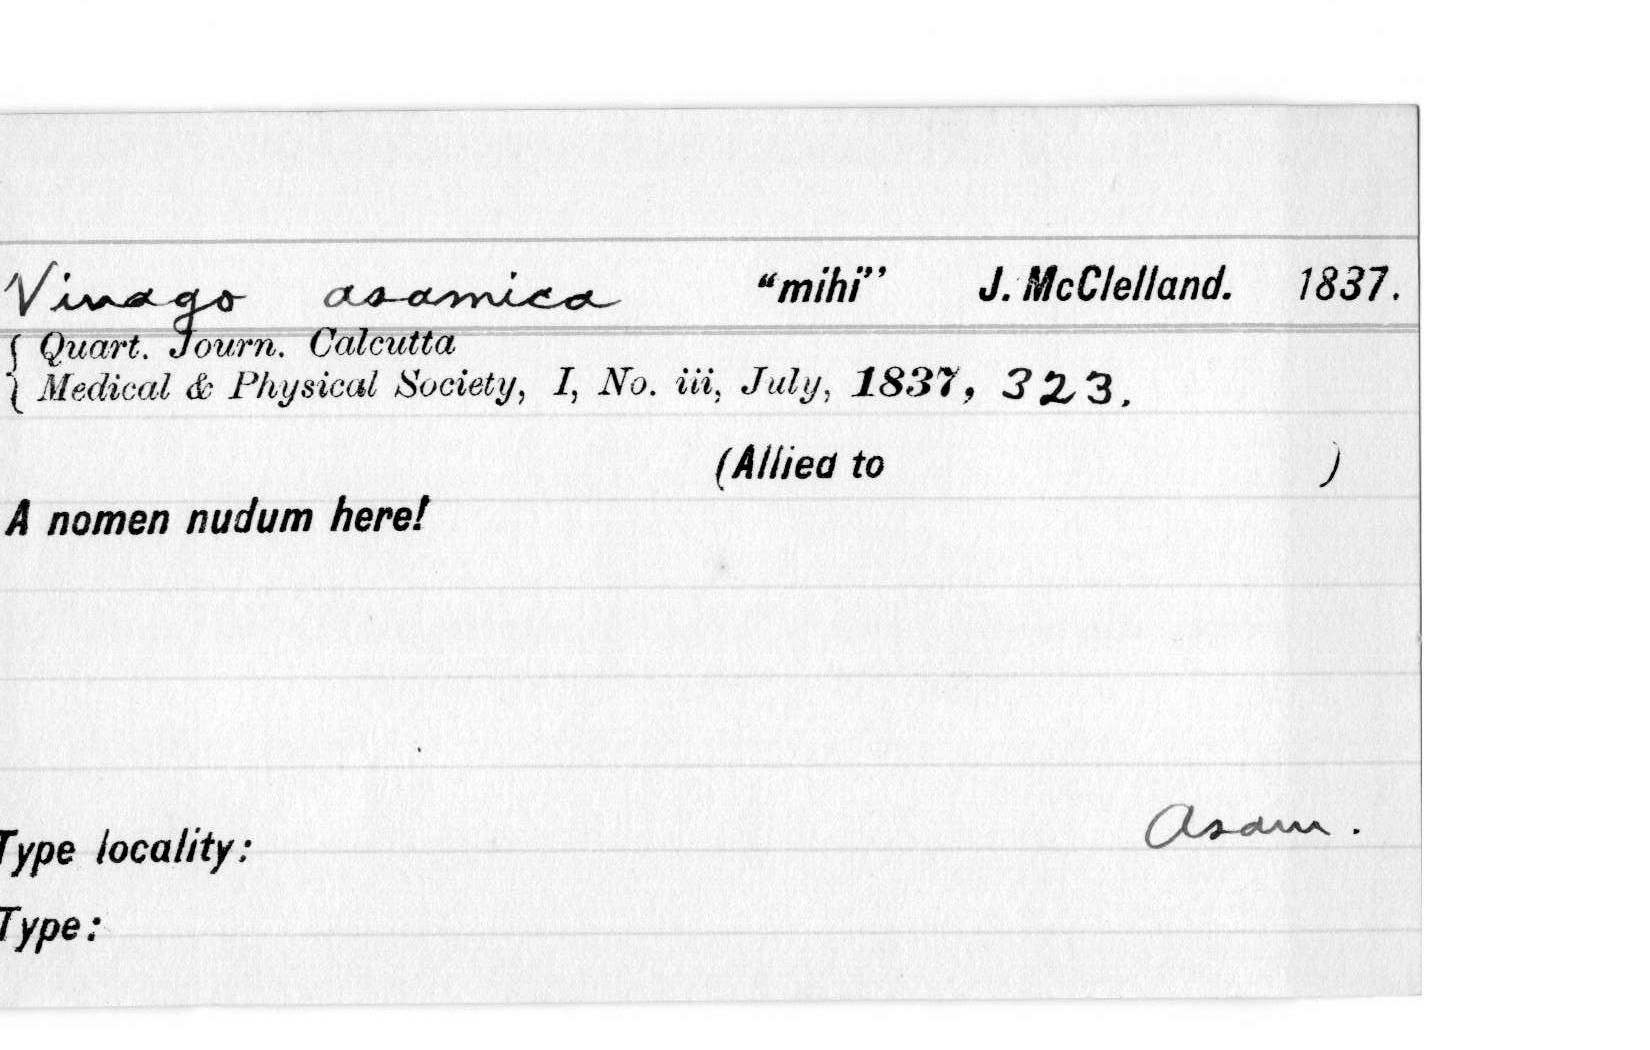 Vinago asamica "mihi" J. McClelland. 1837.
{ Quart. Journ. Calcutta
{ Medical & Physical Society, I, No. iii, July, 1837, 323.
(Allied to )
A nomen nudum here!
Asam.
Type locality:
Type: